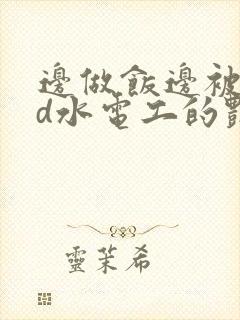 邊做飯邊被
d水電工的
靈茉希